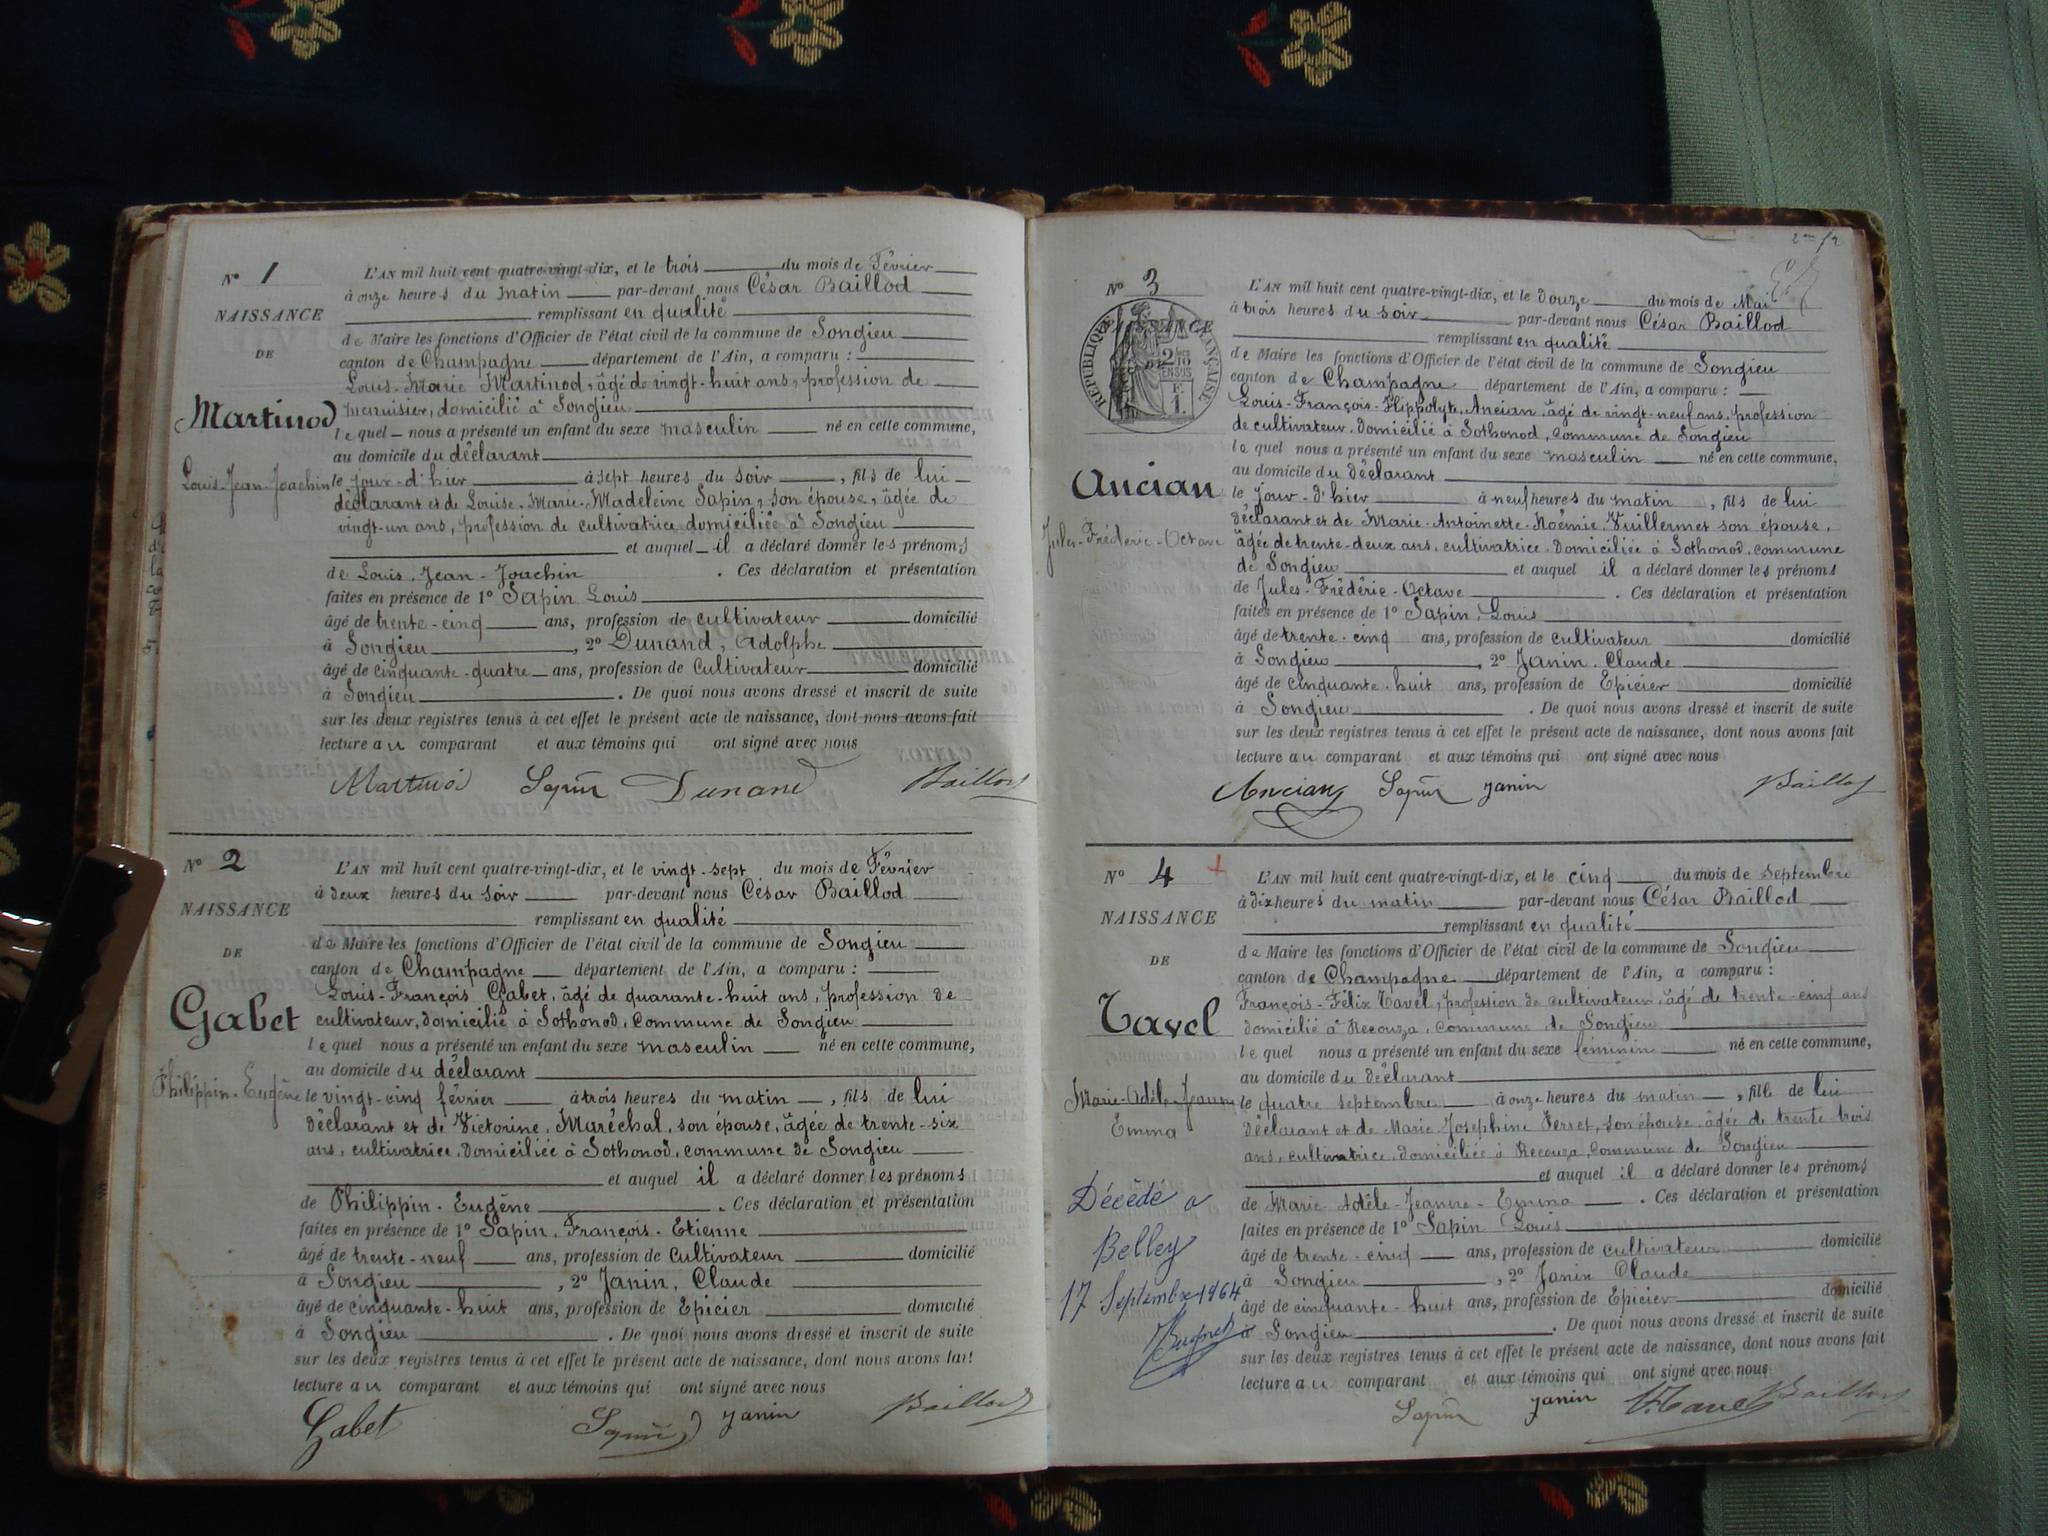 N° 1
NAISSANCE
DE
Martinod
Louis-Jean-Joachin
L'AN mil huit cent quatre-vingt-dix, et le trois du mois de Février
à onze heures du matin par-devant nous César Baillod
remplissant en qualité
de Maire les fonctions d'Officier de l'état civil de la commune de Songieu
canton de Champagne département de l'Ain, a comparu :
Louis-Marie Martinod, âgé de vingt-huit ans, profession de
menuisier, domicilié à Songieu
lequel nous a présenté un enfant du sexe masculin né en cette commune,
au domicile du déclarant
le jour-d'hier à sept heures du soir, fils de lui
déclarant et de Louise-Marie-Madeleine Sapin, son épouse, âgée de
vingt-un ans, profession de cultivatrice domiciliée à Songieu
et auquel il a déclaré donner les prénoms
de Louis-Jean-Joachin. Ces déclaration et présentation
faites en présence de 1° Sapin Louis
âgé de trente-cinq ans, profession de cultivateur domicilié
à Songieu, 2° Dunand, Adolphe
âgé de cinquante-quatre ans, profession de cultivateur domicilié
à Songieu. De quoi nous avons dressé et inscrit de suite
sur les deux registres tenus à cet effet le présent acte de naissance, dont nous avons fait
lecture au comparant et aux témoins qui ont signé avec nous
Martinod Sapin Dunand Baillod
N° 2
NAISSANCE
DE
Gabet
Philippin-Eugène
L'AN mil huit cent quatre-vingt-dix, et le vingt-sept du mois de Février
à deux heures du soir par-devant nous César Baillod
remplissant en qualité
de Maire les fonctions d'Officier de l'état civil de la commune de Songieu
canton de Champagne département de l'Ain, a comparu :
Louis-François Gabet, âgé de quarante-huit ans, profession de
cultivateur, domicilié à Sothonod, commune de Songieu
lequel nous a présenté un enfant du sexe masculin né en cette commune,
au domicile du déclarant
le vingt-cinq février à trois heures du matin, fils de lui
déclarant et de Victorine, Maréchal, son épouse, âgée de trente-six
ans, cultivatrice, domiciliée à Sothonod, commune de Songieu
et auquel il a déclaré donner les prénoms
de Philippin-Eugène. Ces déclaration et présentation
faites en présence de 1° Sapin, François-Etienne
âgé de trente-neuf ans, profession de cultivateur domicilié
à Songieu, 2° Janin, Claude
âgé de cinquante-huit ans, profession de Epicier domicilié
à Songieu. De quoi nous avons dressé et inscrit de suite
sur les deux registres tenus à cet effet le présent acte de naissance, dont nous avons fait
lecture au comparant et aux témoins qui ont signé avec nous
Gabet Sapin Janin Baillod
N° 3
RÉPUBLIQUE FRANÇAISE
NAISSANCE
Ancian
Jules-Fréderic-Octave
L'AN mil huit cent quatre-vingt-dix, et le douze du mois de Mai
à trois heures du soir par-devant nous César Baillod
remplissant en qualité
de Maire les fonctions d'Officier de l'état civil de la commune de Songieu
canton de Champagne département de l'Ain, a comparu :
Louis-François-Hippolyte, Ancian, âgé de vingt-neuf ans, profession
de cultivateur, domicilié à Sothonod, commune de Songieu
lequel nous a présenté un enfant du sexe masculin né en cette commune,
au domicile du déclarant
le jour-d'hier à neuf heures du matin, fils de lui
déclarant et de Marie-Antoinette-Noémie, Vuillermet son épouse,
âgée de trente-deux ans, cultivatrice, domiciliée à Sothonod, commune
de Songieu et auquel il a déclaré donner les prénoms
de Jules-Fréderic-Octave. Ces déclaration et présentation
faites en présence de 1° Sapin, Louis
âgé de trente-cinq ans, profession de cultivateur domicilié
à Songieu, 2° Janin, Claude
âgé de cinquante-huit ans, profession de Epicier domicilié
à Songieu. De quoi nous avons dressé et inscrit de suite
sur les deux registres tenus à cet effet le présent acte de naissance, dont nous avons fait
lecture au comparant et aux témoins qui ont signé avec nous
Ancian Sapin Janin Baillod
N° 4
NAISSANCE
DE
Tavel
Marie-Adèle-Jeanne
Emma
Décédé à
Belley
17 Septembre 1964
L'AN mil huit cent quatre-vingt-dix, et le cinq du mois de septembre
à dix heures du matin par-devant nous César Baillod
remplissant en qualité
de Maire les fonctions d'Officier de l'état civil de la commune de Songieu
canton de Champagne département de l'Ain, a comparu :
François-Félix Tavel, profession de cultivateur, âgé de trente-cinq ans
domicilié à Recouza, commune de Songieu
lequel nous a présenté un enfant du sexe féminin né en cette commune,
au domicile du déclarant
le quatre septembre à onze heures du matin, fille de lui
déclarant et de Marie-Josephine Ferret, son épouse, âgée de trente trois
ans, cultivatrice, domiciliée à Recouza, commune de Songieu
et auquel il a déclaré donner les prénoms
de Marie Adèle-Jeanne-Emma. Ces déclaration et présentation
faites en présence de 1° Sapin Louis
âgé de trente-cinq ans, profession de cultivateur domicilié
à Songieu, 2° Janin Claude
âgé de cinquante-huit ans, profession de Epicier domicilié
à Songieu. De quoi nous avons dressé et inscrit de suite
sur les deux registres tenus à cet effet le présent acte de naissance, dont nous avons fait
lecture au comparant et aux témoins qui ont signé avec nous
Sapin Janin Tavel Baillod